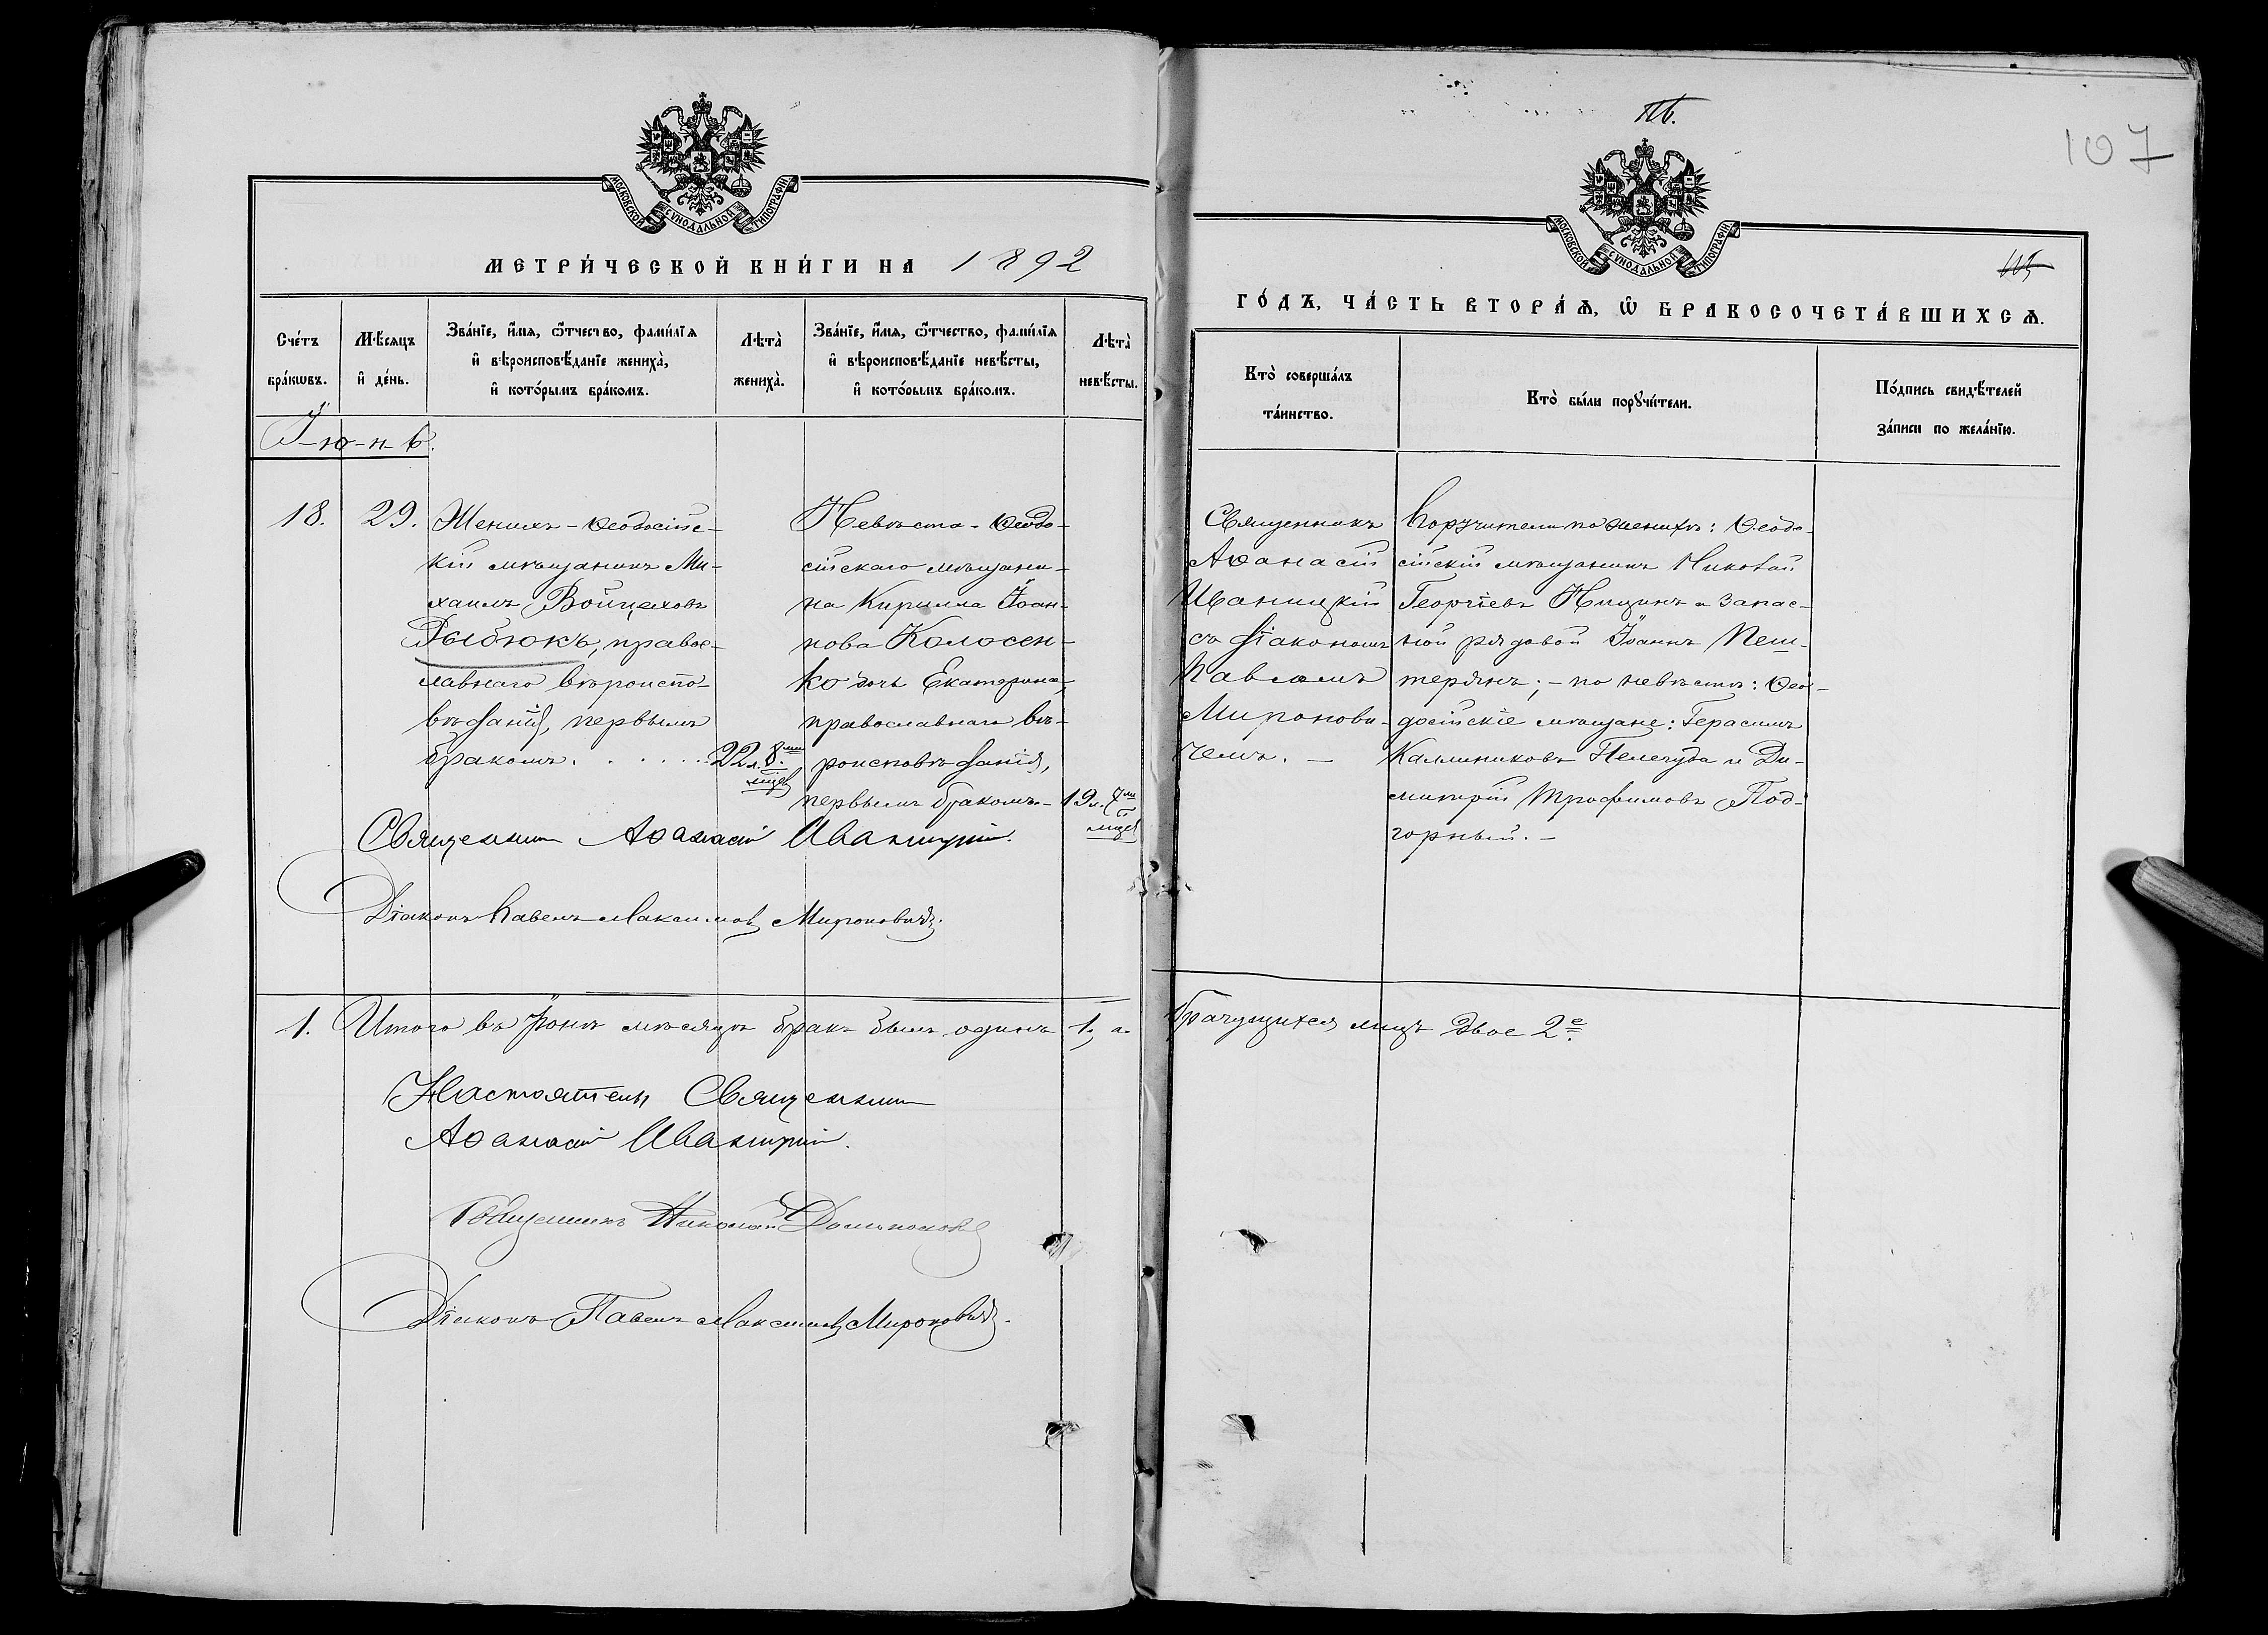 МОСКОВСКОЙ СѴНОДАЛЬНОЙ ТИПОГРАФІИ
МЕТРИ́ЧЕСКОЙ КНИ́ГИ НА 1892
Сче́тъ бра́кѡвъ.
Мѣ́сяцъ и҆ де́нь.
Зва́нїе, и҆́мѧ, ѻ҆́тчество, фами́лїѧ
и҆ вѣроисповѣ́данїе жениха̀,
и҆ кото́рымъ бра́комъ.
Лѣта̀ жениха̀.
Зва́нїе, и҆́мѧ, ѻ҆́тчество, фами́лїѧ
и҆ вѣроисповѣ́данїе невѣ́сты,
и҆ кото́рымъ бра́комъ.
Лѣта̀ невѣ́сты.
І-ю-н-ь.
18.
29.
Женихъ - Ѳеодосійс-
кій мѣщанинъ Ми-
хаилъ Войцеховъ
Рыбюкъ, правос-
лавнаго вѣроиспо-
вѣданія, первымъ
бракомъ.
22 л. 8 ми
мцев
Невѣста - Ѳеодо-
сійскаго мѣщани-
на Кирилла Іоан-
нова Колосен-
ко дочь Екатерина,
православнаго вѣ-
роисповѣданія,
первымъ бракомъ -
19 л. 7 ми
мцев
Священник Аѳанасій Иваницкій.
Діаконъ Павелъ Максимовъ Мироновичъ.
1. Итого въ Іюнѣ мѣсяцѣ бракъ былъ одинъ 1, а
Настоятель Священник
Аѳанасій Иваницкій.
Священникъ Николай
Діаконъ Павелъ Максимовъ Мироновичъ.
107
МОСКОВСКОЙ СѴНОДАЛЬНОЙ ТИПОГРАФІИ
ГО́ДЪ, ЧА́СТЬ ВТОРА́Ѧ, Ѡ҆ БРАКОСОЧЕТА́ВШИХСѦ.
Кто̀ соверша́лъ
та́инство.
Кто̀ бы́ли порꙋчи́тели.
По́дпись свидѣ́телей
за́писи по жела́нїю.
Священникъ
Аѳанасій
Иваницкій
съ діакономъ
Павломъ
Миронови-
чемъ. —
Поручители по женихѣ: Ѳеодо-
сійскій мѣщанинъ Николай
Георгіевъ Ницинъ и запас-
ной рядовой Іоаннъ Пеш-
терянъ; - по невѣстѣ: Ѳео-
досійскіе мѣщане: Герасимъ
Каллиниковъ Пелехуда и Ди-
митрій Трофимовъ Под-
горный. —
брачущихся лицъ двое 2е.